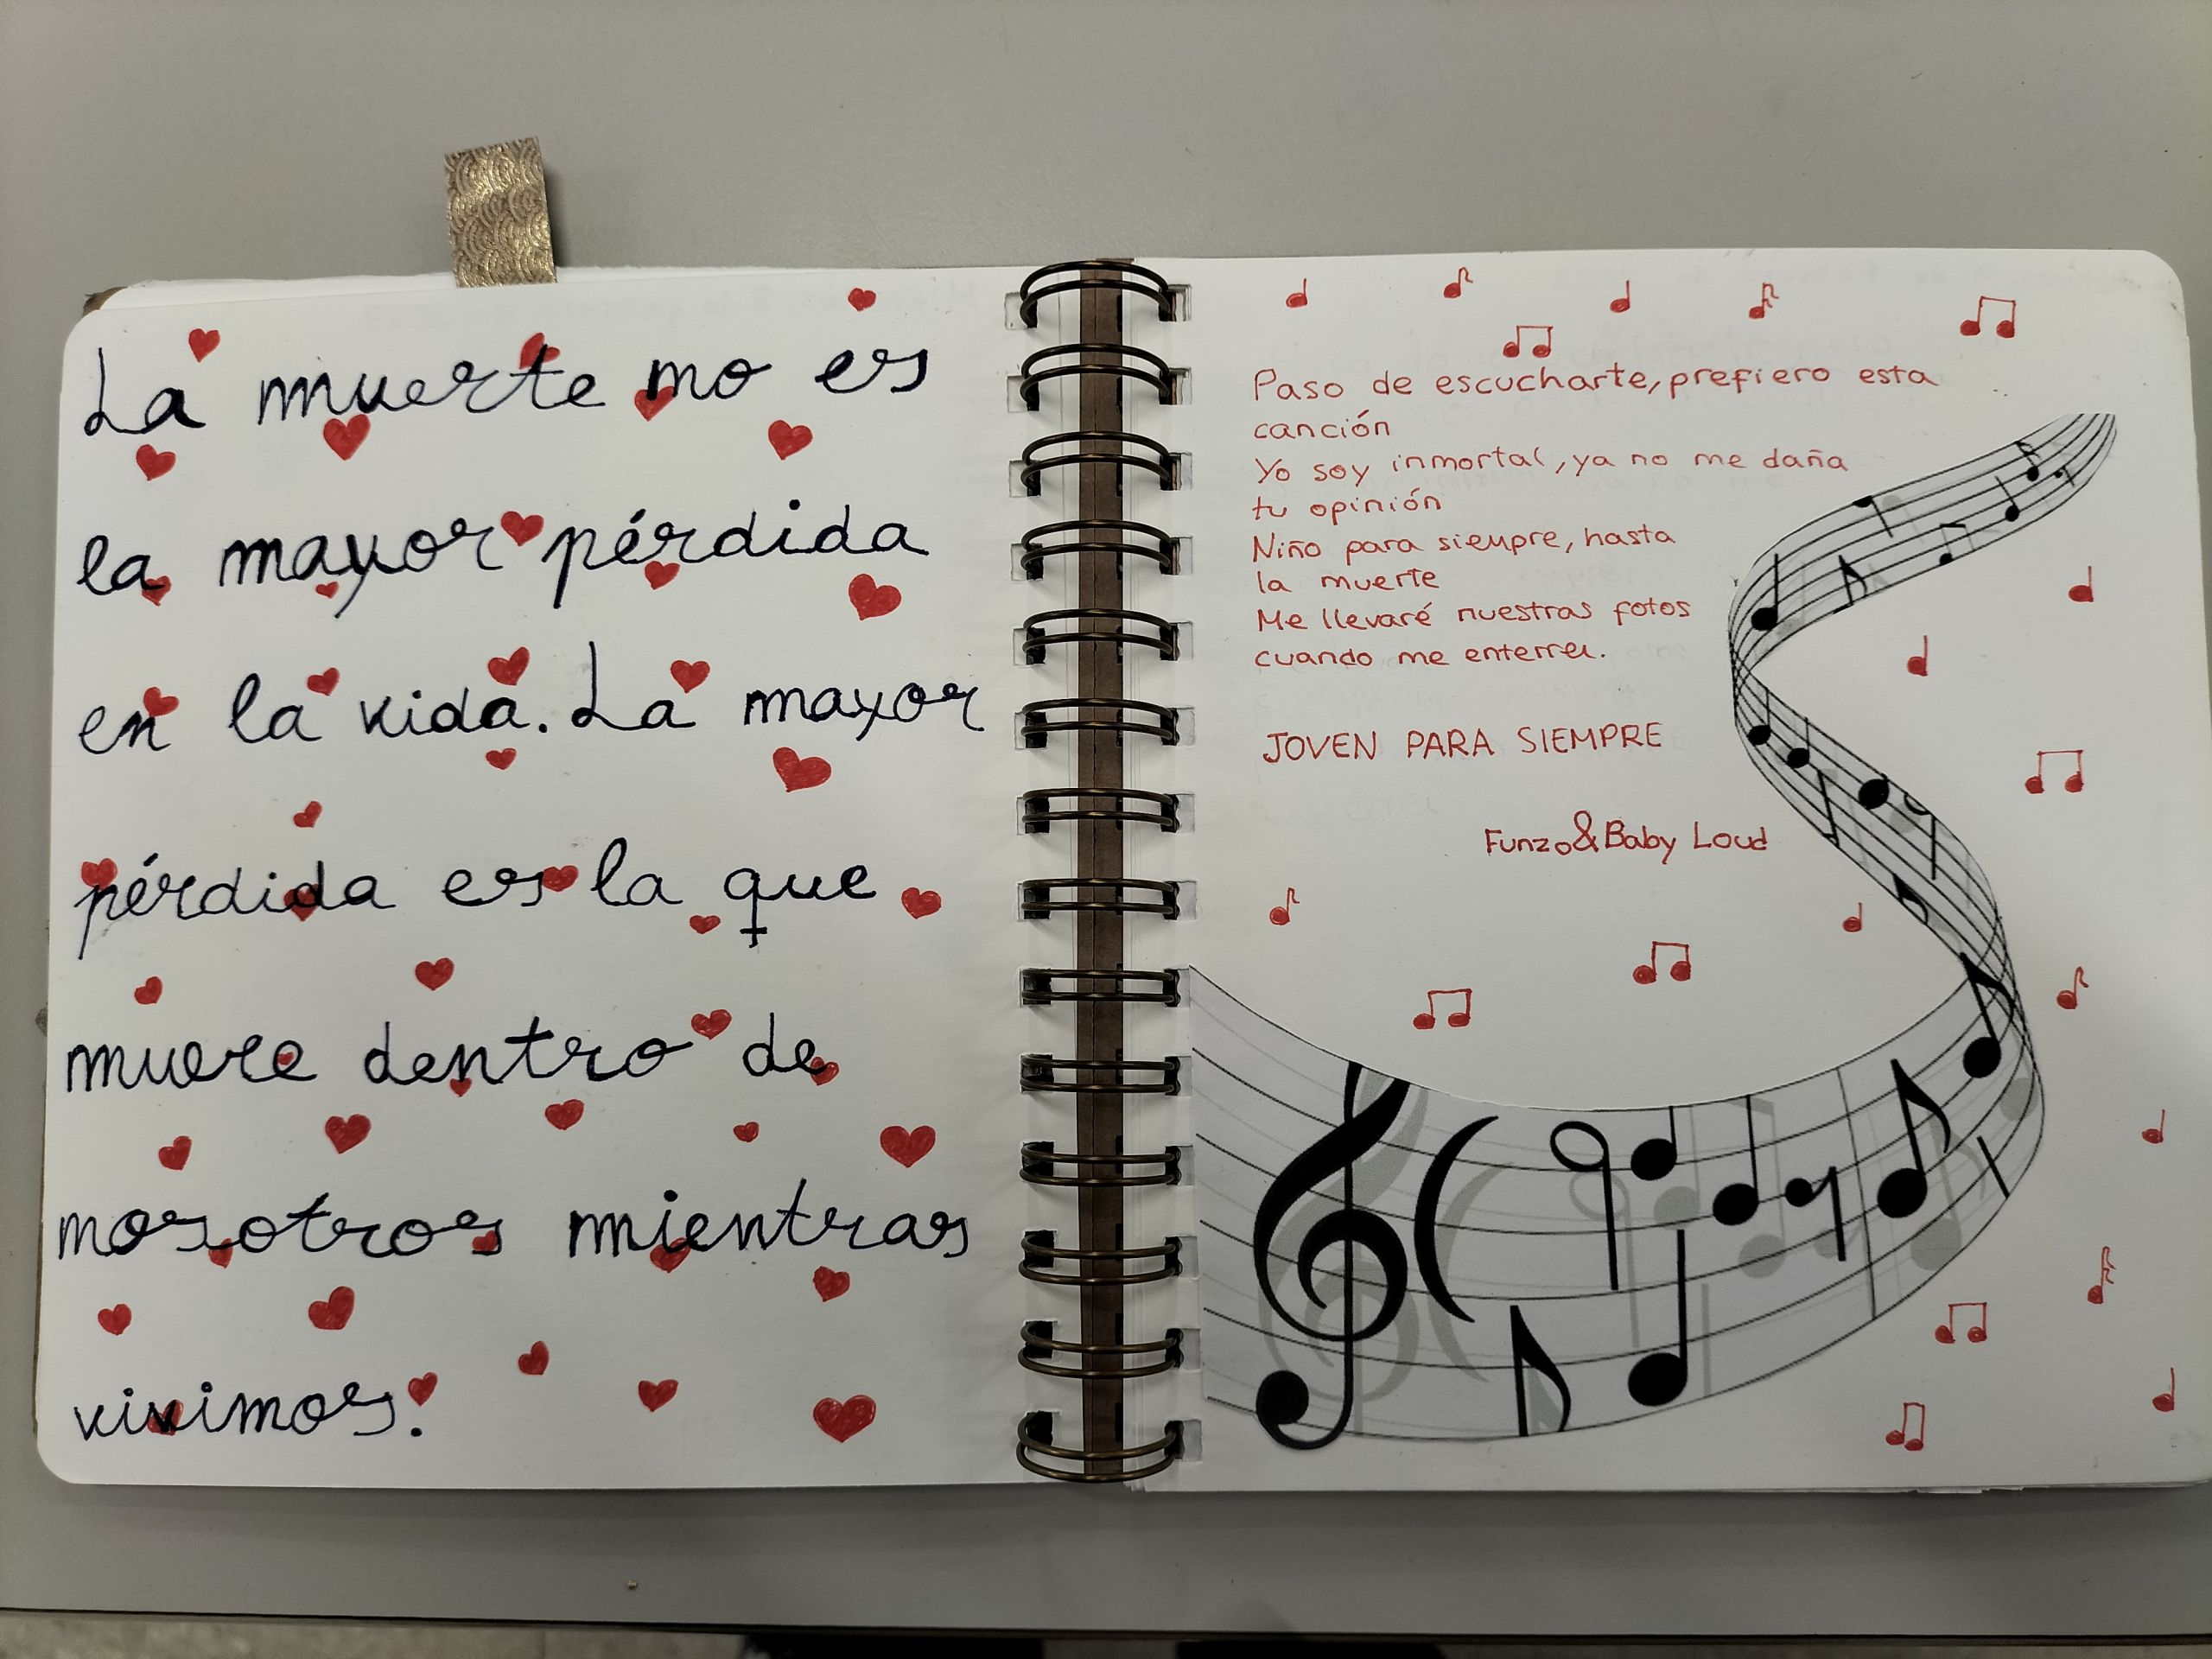 La muerte no es
la mayor pérdida
en la vida. La mayor
pérdida es la que
muere dentro de
nosotros mientras
vivimos.
Paso de escucharte, prefiero esta
canción
Yo soy inmortal, ya no me daña
tu opinión
Niño para siempre, hasta
la muerte
Me llevaré nuestras fotos
cuando me
JOVEN PARA SIEMPRE
Funzo & Baby Loud